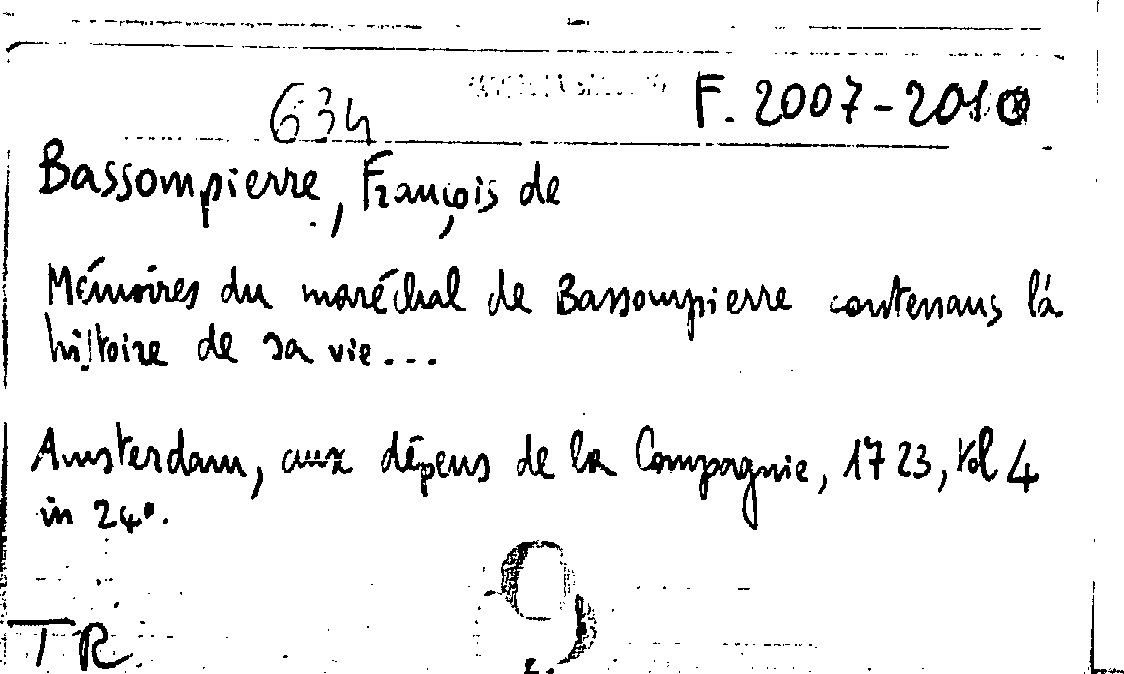 634 F. 2007-2010
Bassompierre, François de
Mémoires du maréchal de Bassompierre contenans là
histoire de sa vie...
Amsterdam, aux dépens de la Compagnie, 1723, Vol 4
in 24°.
TR
9